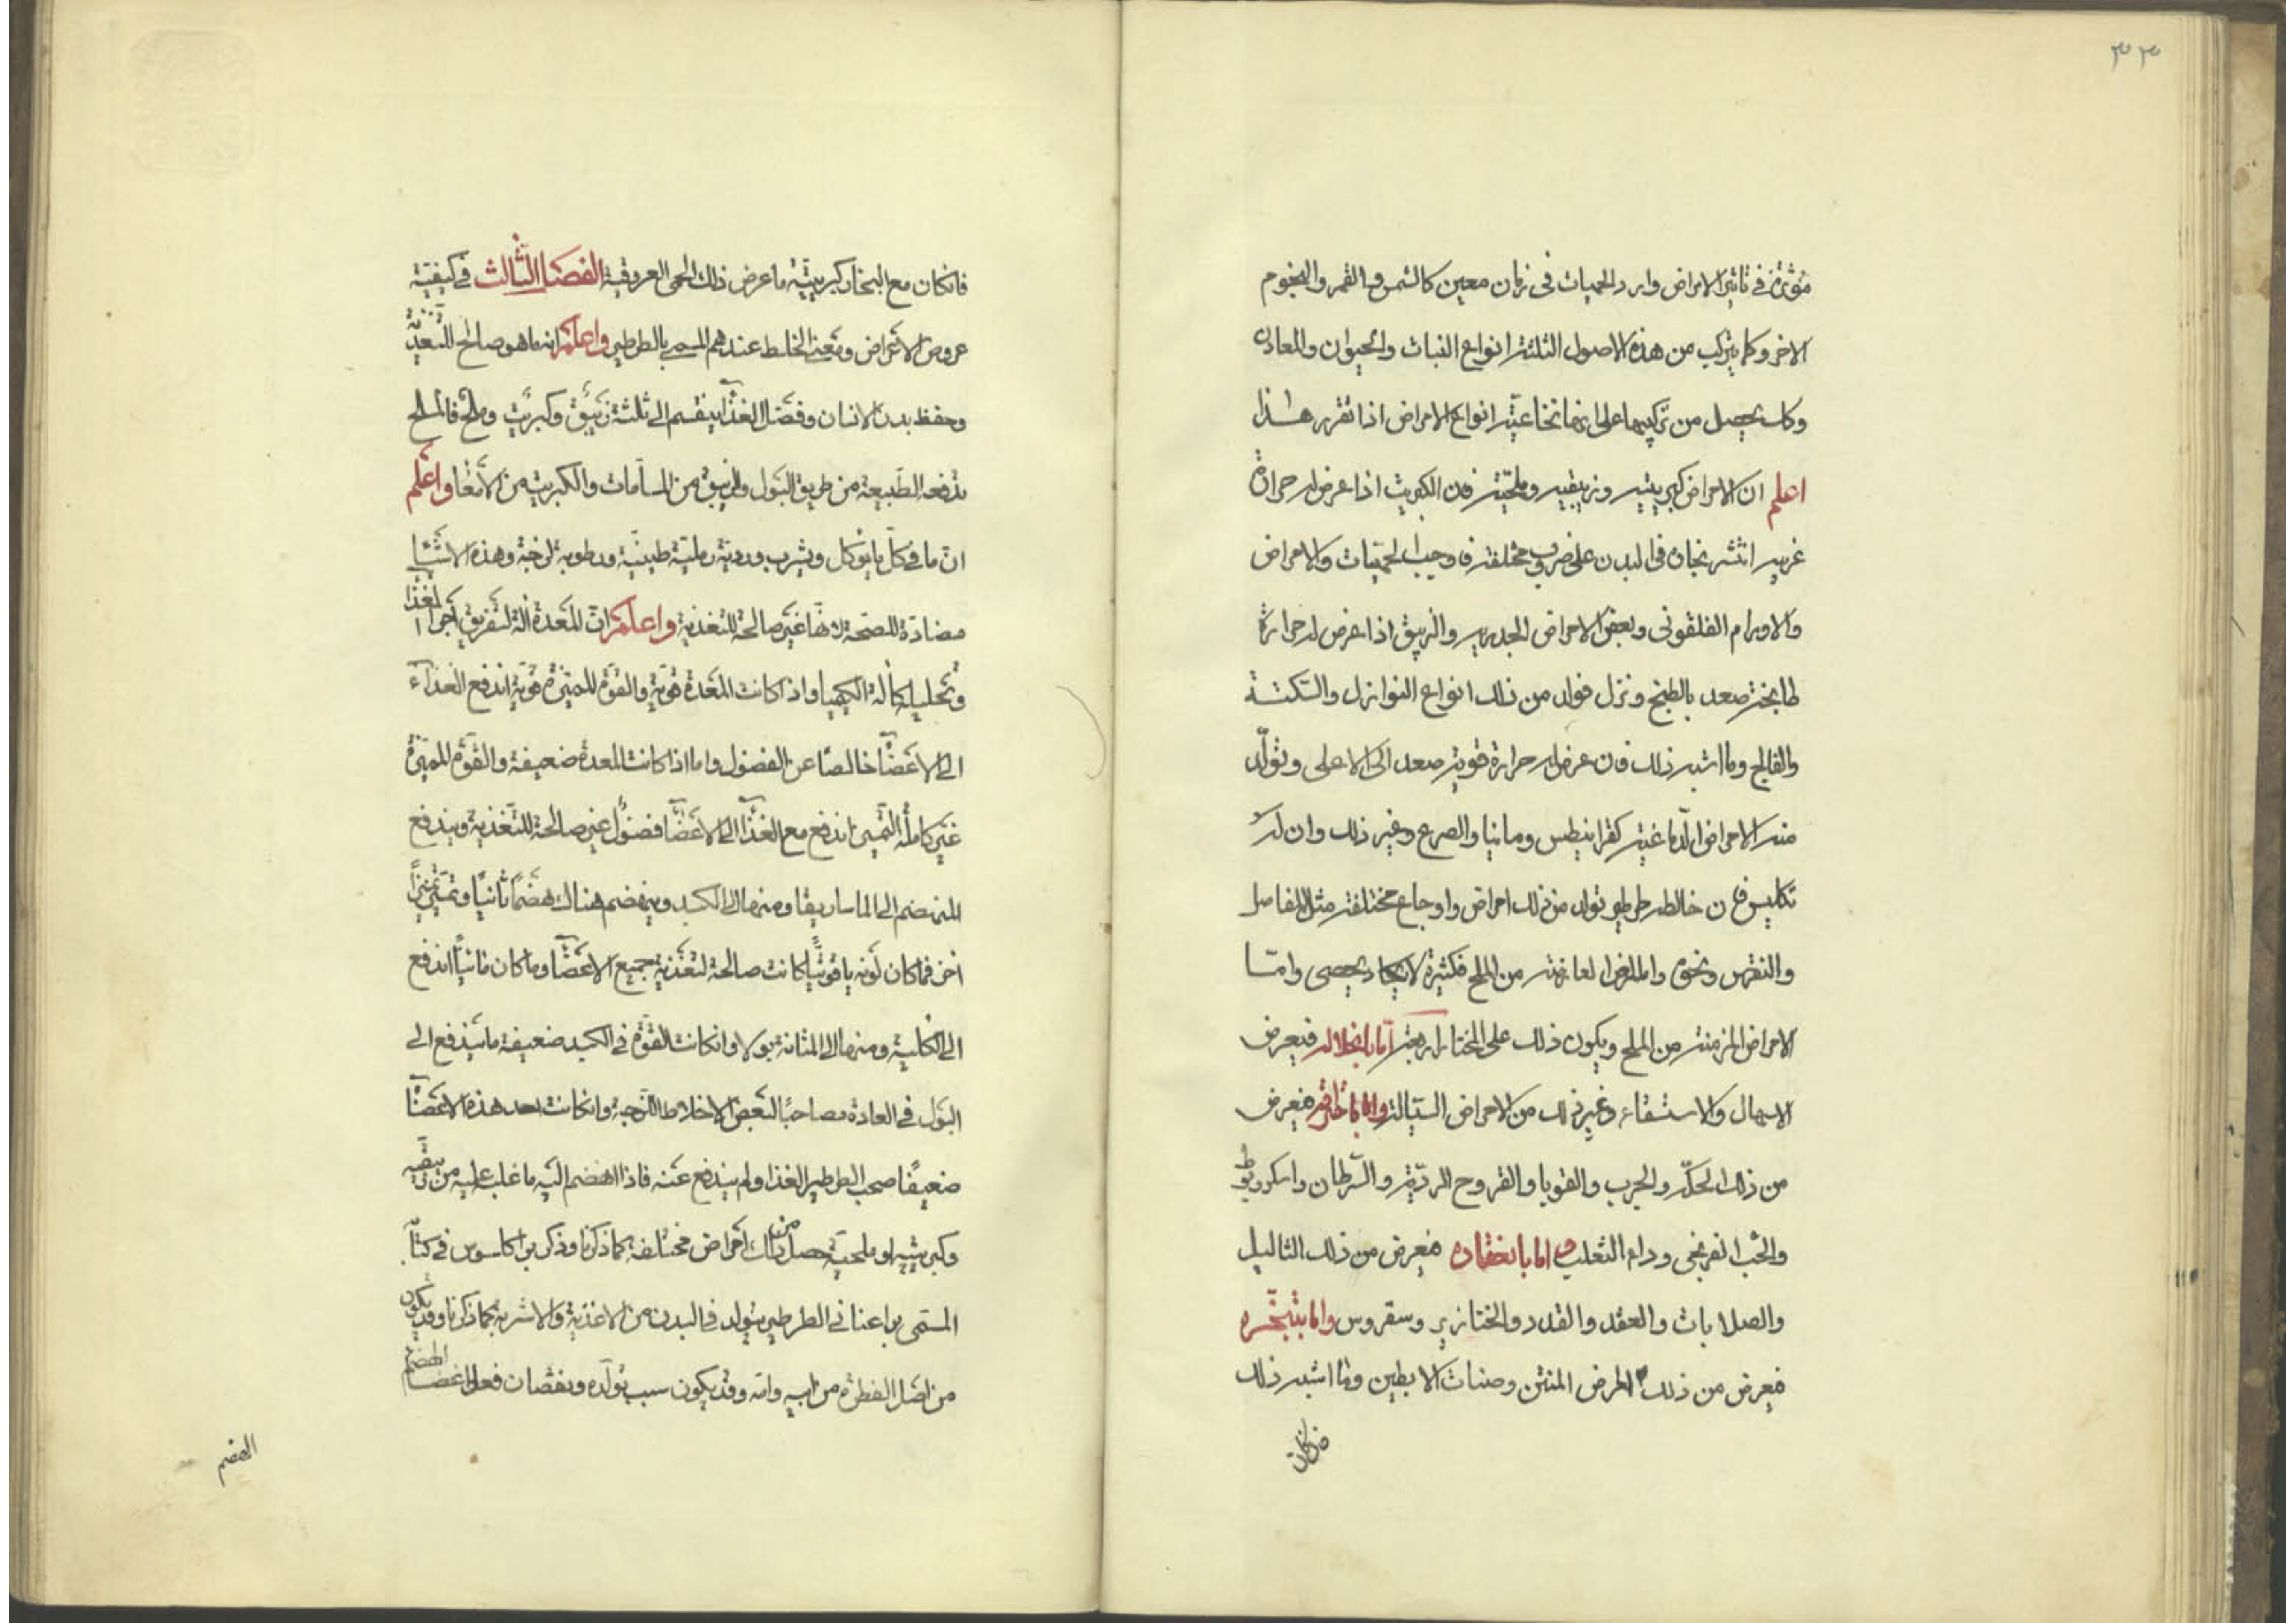 ٣٣
مؤثرة في تاثير الامراض وادوار الحميات في زمان معين كالشمس والقمر والنجوم
الاخر وكما يتركب من هذه الاصول الثلثة انواع النبات والحيوان والمعادن
وكك يحصل من تركيبها على انحائها انواع الامراض اذا تقرر هذا
اعلم ان الامراض كبريتية وزيبقية وملحية فان الكبريت اذا عرض له حرارة
غريبة انتشر بخاره في البدن على ضروب مختلفة فاوجب الحميات والامراض
والاورام الفلغموني وبعض الامراض الجدرية والزيبق اذا عرض له حرارة
طابخة صعد بالطبخ ونزل فولد من ذلك انواع النوازل والسكتة
والفالج وما اشبه ذلك فان عرض له حرارة قوية صعد الى الاعلى وتولد
منه الامراض الدماغية كقرانيطس ومانيا والصرع وغير ذلك وان له
تكليس فان خالطه طرطير تولد من ذلك امراض واوجاع مختلفة مثل المفاصل
والنقرس ونحوه واما المرض العارضة من الملح فكثيرة لا يكاد يحصى وامّا
الامراض المزمنة من الملح ويكون ذلك على انحاء اربعة امّا بانحلاله فيعرض
الاسهال والاستسقاء وغير ذلك من الامراض السيالة واما باحتراقه فيعرض
من ذلك الحكّة والجرب والقوبا والقروح الرديّة والسّرطان واسكوربوط
والحب الفرنجي وداء الثعلب واما بانعقاده فيعرض من ذلك الثاليل
والصلابات والعقد والغدد والخنازير وسقروس واما بتبخّره
فيعرض من ذلك المرض المنتن وصنات الابطين وما اشبه ذلك
فان كان
فانكان مع البخار كبريتيّة ما عرض ذلك الحمى العروقية الفصل الثالث في كيفيّة
عروض الامراض ومعنى الخلط عندهم المسمى بالطرطير واعلم انه ما هو صالح للتغذية
وحفظ بدن الانسان وفضل الغذا ينقسم الى ثلثة زيبق وكبريت وملح فالملح
تدفعه الطبيعة من طريق البول والزيبق من المسامات والكبريت من الامعا واعلم
ان ما في كل ما يؤكل ويشرب ورديّة رملية طينيّة ورطوبة لزجة وهذه الاشيا
مضادّة للصحة لانها غير صالحة للتغذية واعلم ان المعدة الة لتفريق اجزا الغذا
وتحليله كالة الكيميا واذا كانت المعدة قوية والقوة المميزة قوية اندفع الغذاء
الى الاعضا خالصًا عن الفضول واما اذا كانت المعدة ضعيفة والقوة المميزة
غير كاملة التميز اندفع مع الغذا الى الاعضا فضول غير صالحة للتغذية ويندفع
المنهضم الى الماساريقا ومنها الى الكبد وينهضم هناك هضمًا ثانيًا وتميّز تميزًا
اخر فما كان لونه ياقوتيًّا كانت صالحة لتغذية جميع الاعضا وما كان مائيًّا اندفع
الى الكلية ومنها الى المثانة بولا وانكانت القوّة في الكبد ضعيفة ما يندفع الى
البول في العادة مصاحبًا لبعض الاخلاط اللزجة وانكانت احد هذه الاعضا
ضعيفًا صحب الطرطير الغذا ولم يندفع عنه فاذا انهضم اليه ما غلب عليه من زيبقية
وكبريتية او ملحية حصل من ذلك امراض مختلفة كما ذكرنا وذكر براكلسوس في كتاب
المسمى براعنا في الطرطير يتولد في البدن من الاغذية والاشربة كما ذكرنا وقد يكون
من اصل الفطرة من ابيه وامه وقد يكون سبب تولده ونقصان فعل اعضا الهضم
الهضم